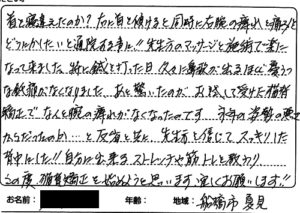 首を寝違えたのか?右に首を傾けると同時に右腕の痺れと痛みを
どうにかしたいと通院する事に!!先生方のマッサージと施術で楽に
なって来ました。特に鍼を打った日、久々に鼻歌が出るほど憂うつ
な鈍痛がなくなりました。あと驚いたのが、お試しで受けた猫背
矯正でなんと腕の痺れがなくなったのです。 今年の姿勢の悪さ
からだったのか…と反省と共に、先生方を信じてスッキリした
背中にした!!自分に出来るストレッチや筋トレと教わり
この度、猫背矯正を始めようと思います。宜しくお願いします!!
お名前: 年齢: 地域: 船橋市 夏見